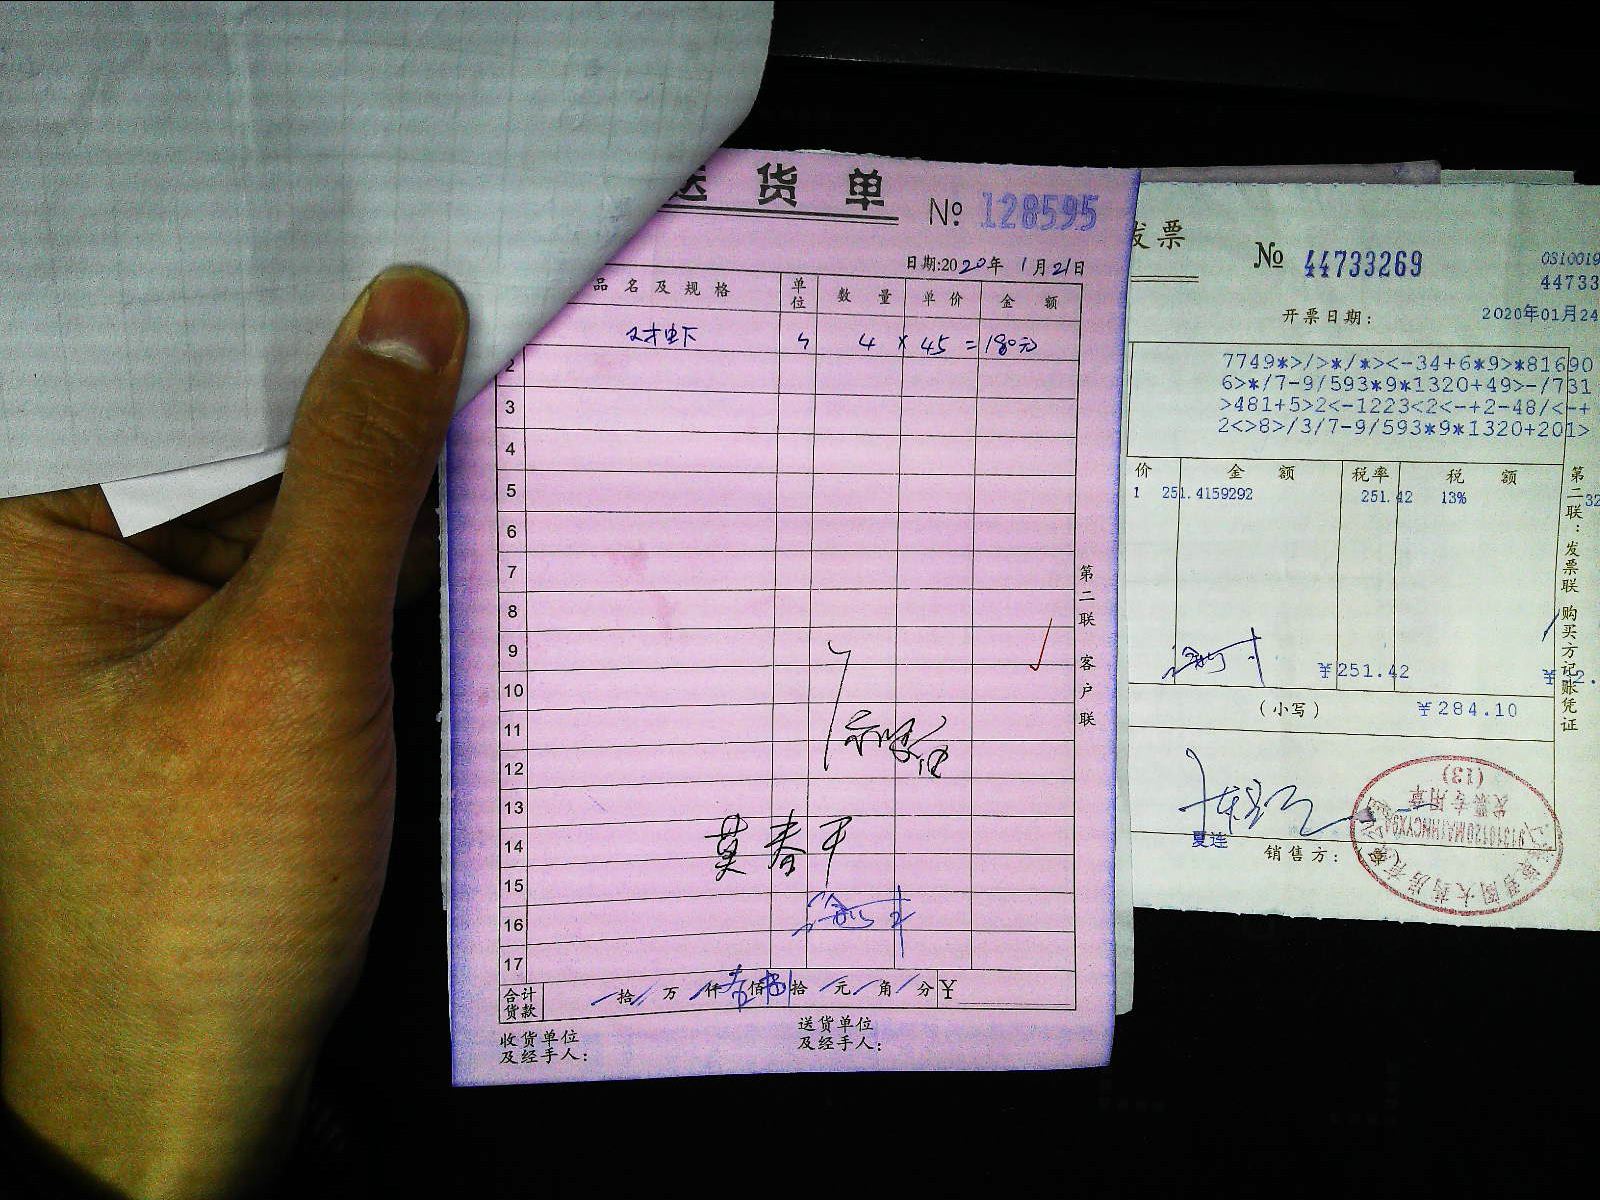 送货单
№ 128595
日期:2020年1月21日
品名及规格 单位 数量 单价 金额
4 × 45 = 180元
2
3
4
5
6
7
8
9
10
11
12
13
14
15
16
17
莫春平
合计货款 拾 万 仟 壹佰捌拾 元 角 分 ¥
收货单位
及经手人:
送货单位
及经手人:
第二联 客户联
发票
№ 44733269
44733
开票日期: 2020年01月24
7749*>/>*/*><-34+6*9>*81690
6>*/7-9/593*9*1320+49>-/731
>481+5>2<-1223<2<-+2-48/<-+
2<>8>/3/7-9/593*9*1320+201>
价 金额 税率 税额
1 251.4159292 251.42 13% 32
¥251.42
(小写) ¥284.10
夏连
销售方:
发票专用章
(13)
第二联:发票联 购买方记账凭证